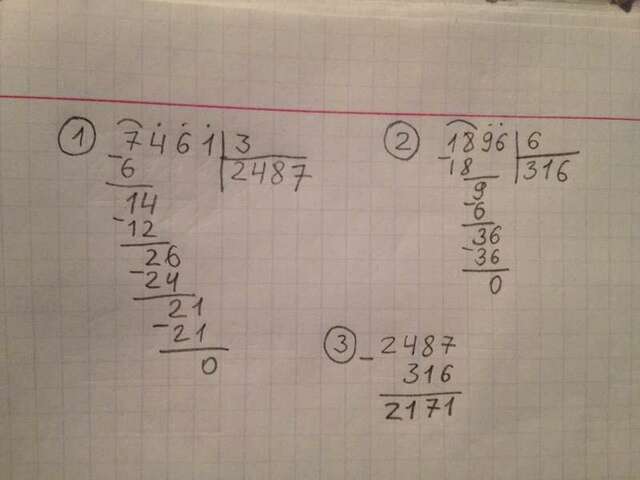 1 7461 3
-6 2487
14
-12
26
-24
21
-21
0
2 1896 6
-18 316
9
-6
36
-36
0
3 - 2487
316
2171